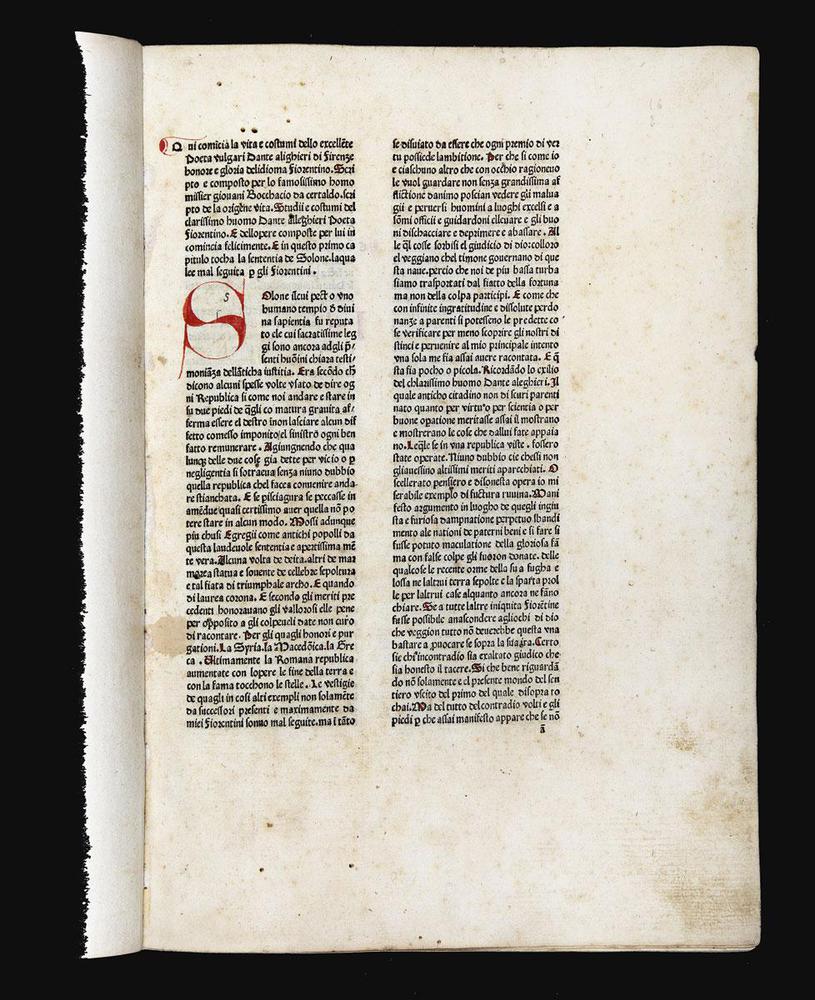 Qui comicia la vita e costumi dello excellēte
Poeta vulgari Dante alighieri di Firenze
honore e gloria delidioma Fiorentino. Scri
pto e composto per lo famosissimo homo
missier giouani Bocchacio da certaldo. scri
pto de la origine vita. Studii e costumi del
clarissimo huomo Dante Alleghieri Poeta
Fiorentino. E dellopere composte per lui in
comincia felicimente. E in questo primo ca
pitulo tocha la sententia de Solone. laqua
lee mal seguita ꝑ gli Fiorentini.
S
Solone ilcui pecto vno
humano tempio o diui
na sapientia fu reputa
to ele cui sacratissime leg
gi sono ancora adgli p̄
senti huoini chiara testi
moniāza dellāticha iustitia. Era secōdo ch̄
dicono alcuni spesse volte vsato de dire og
ni Republica si come noi andare e stare in
su due piedi de q̄gli co matura grauita af
ferma essere el destro inon lasciare alcun dif
fetto comesso imponito el sinistro ogni ben
fatto remunerare. Agiungnendo che qua
lunq̨ delle due cose gia dette per vicio o ꝑ
negligentia si sotraeua senza niuno dubbio
quella republica chel facea conuenire anda
re stianchata. E se pisciagura se peccasse in
amēdue quasi certissimo auer quella nō po
tere stare in alcun modo. Mossi adunque
piu chusi Egregii come antichi popolli da
questa laudeuole sententia e apertissima mē
te vera. Alcuna volta de deita. altri de mar
morea statua e souente de cellebre sepoltura
e tal fiata di triumphale archo. E quando
di laurea corona. E secondo gli meriti pre
cedenti honorauano gli vallorosi elle pene
per opposito a gli colpeuoli date non curo
di racontare. Per gli quagli honori e pur
gationi. La Syria. la Macedōica. la Gre
ca. Ultimamente la Romana republica
aumentate con lopere le fine della terra e
con la fama tocchono le stelle. Le vestigie
de quagli in cosi alti exempli non solamēte
da successori presenti e maximamente da
miei Fiorentini sonuo mal seguite. ma i tāto
se disuiato da essere che ogni premio di ver
tu possiede lambitione. Per che si come io
e ciaschuno altro che con occhio ragioneuo
le vuol guardare non senza grandissima af
flictione danimo poscian vedere gli malua
gii e peruersi huomini a luoghi excelsi e a
sōmi officii e guidardoni elleuare e gli buo
ni dischacciare e deprimere e abassare. Al
le q̄l cose sorbisi el giudicio di dio: colloro
el veggiano chel timone gouernano di que
sta naue. percio che noi de piu bassa turba
siamo trasportati dal fiatto della fortuna
ma non della colpa participi. E come che
con infinite ingratitudine e dissolute perdo
nanze a parenti si potesseno le predette co
se verificare per meno scoprire gli nostri di
stinci e peruenire al mio principale intento
vna sola me fia assai auere racontata. E q̄
sta fia pocho o picola. Ricordādo lo exilio
del chlarissimo huomo Dante aleghieri. Il
quale anticho citadino non di scuri parenti
nato quanto per virtu o per scientia o per
buone opatione meritasse assai il mostrano
e mostrerano le cose che dallui fate appaia
no. Leq̄le se in vna republica viste. fossero
state operate. Niuno dubbio cie chessi non
gliauessino altissimi meriti aparechiati. O
scellerato pensiero e disonesta opera io mi
serabile exemplo di fuctura ruuina. Mani
festo argumento in luogho de quegli ingiu
sta e furiosa dampnatione perpetuo sbandi
mento ale nationi de paterni beni e si fare si
fusse potuto maculatione della gloriosa fā
ma con false colpe gli fuoron donate. delle
qualcose le recente orme della su a fugha e
lossa ne laltrui terra sepolte e la sparta prol
le per laltrui case alquanto ancora ne fāno
chiare. Se a tutte laltre iniquita Fiorētine
fusse possibile anascondere agliochi di dio
che veggion tutto nō deuerebbe questa vna
bastare a ꝓuocare se sopra la sua ira. Certo
sie ch'incontradio sia exaltato giudico che
sia honesto il tacere. Si che bene riguardā
do nō solamente el presente mondo del sen
tiero vscito del primo del quale disopra to
chai. Ma del tutto del contradio volti e gli
piedi ꝑ che assai manifesto appare che se nō
ā